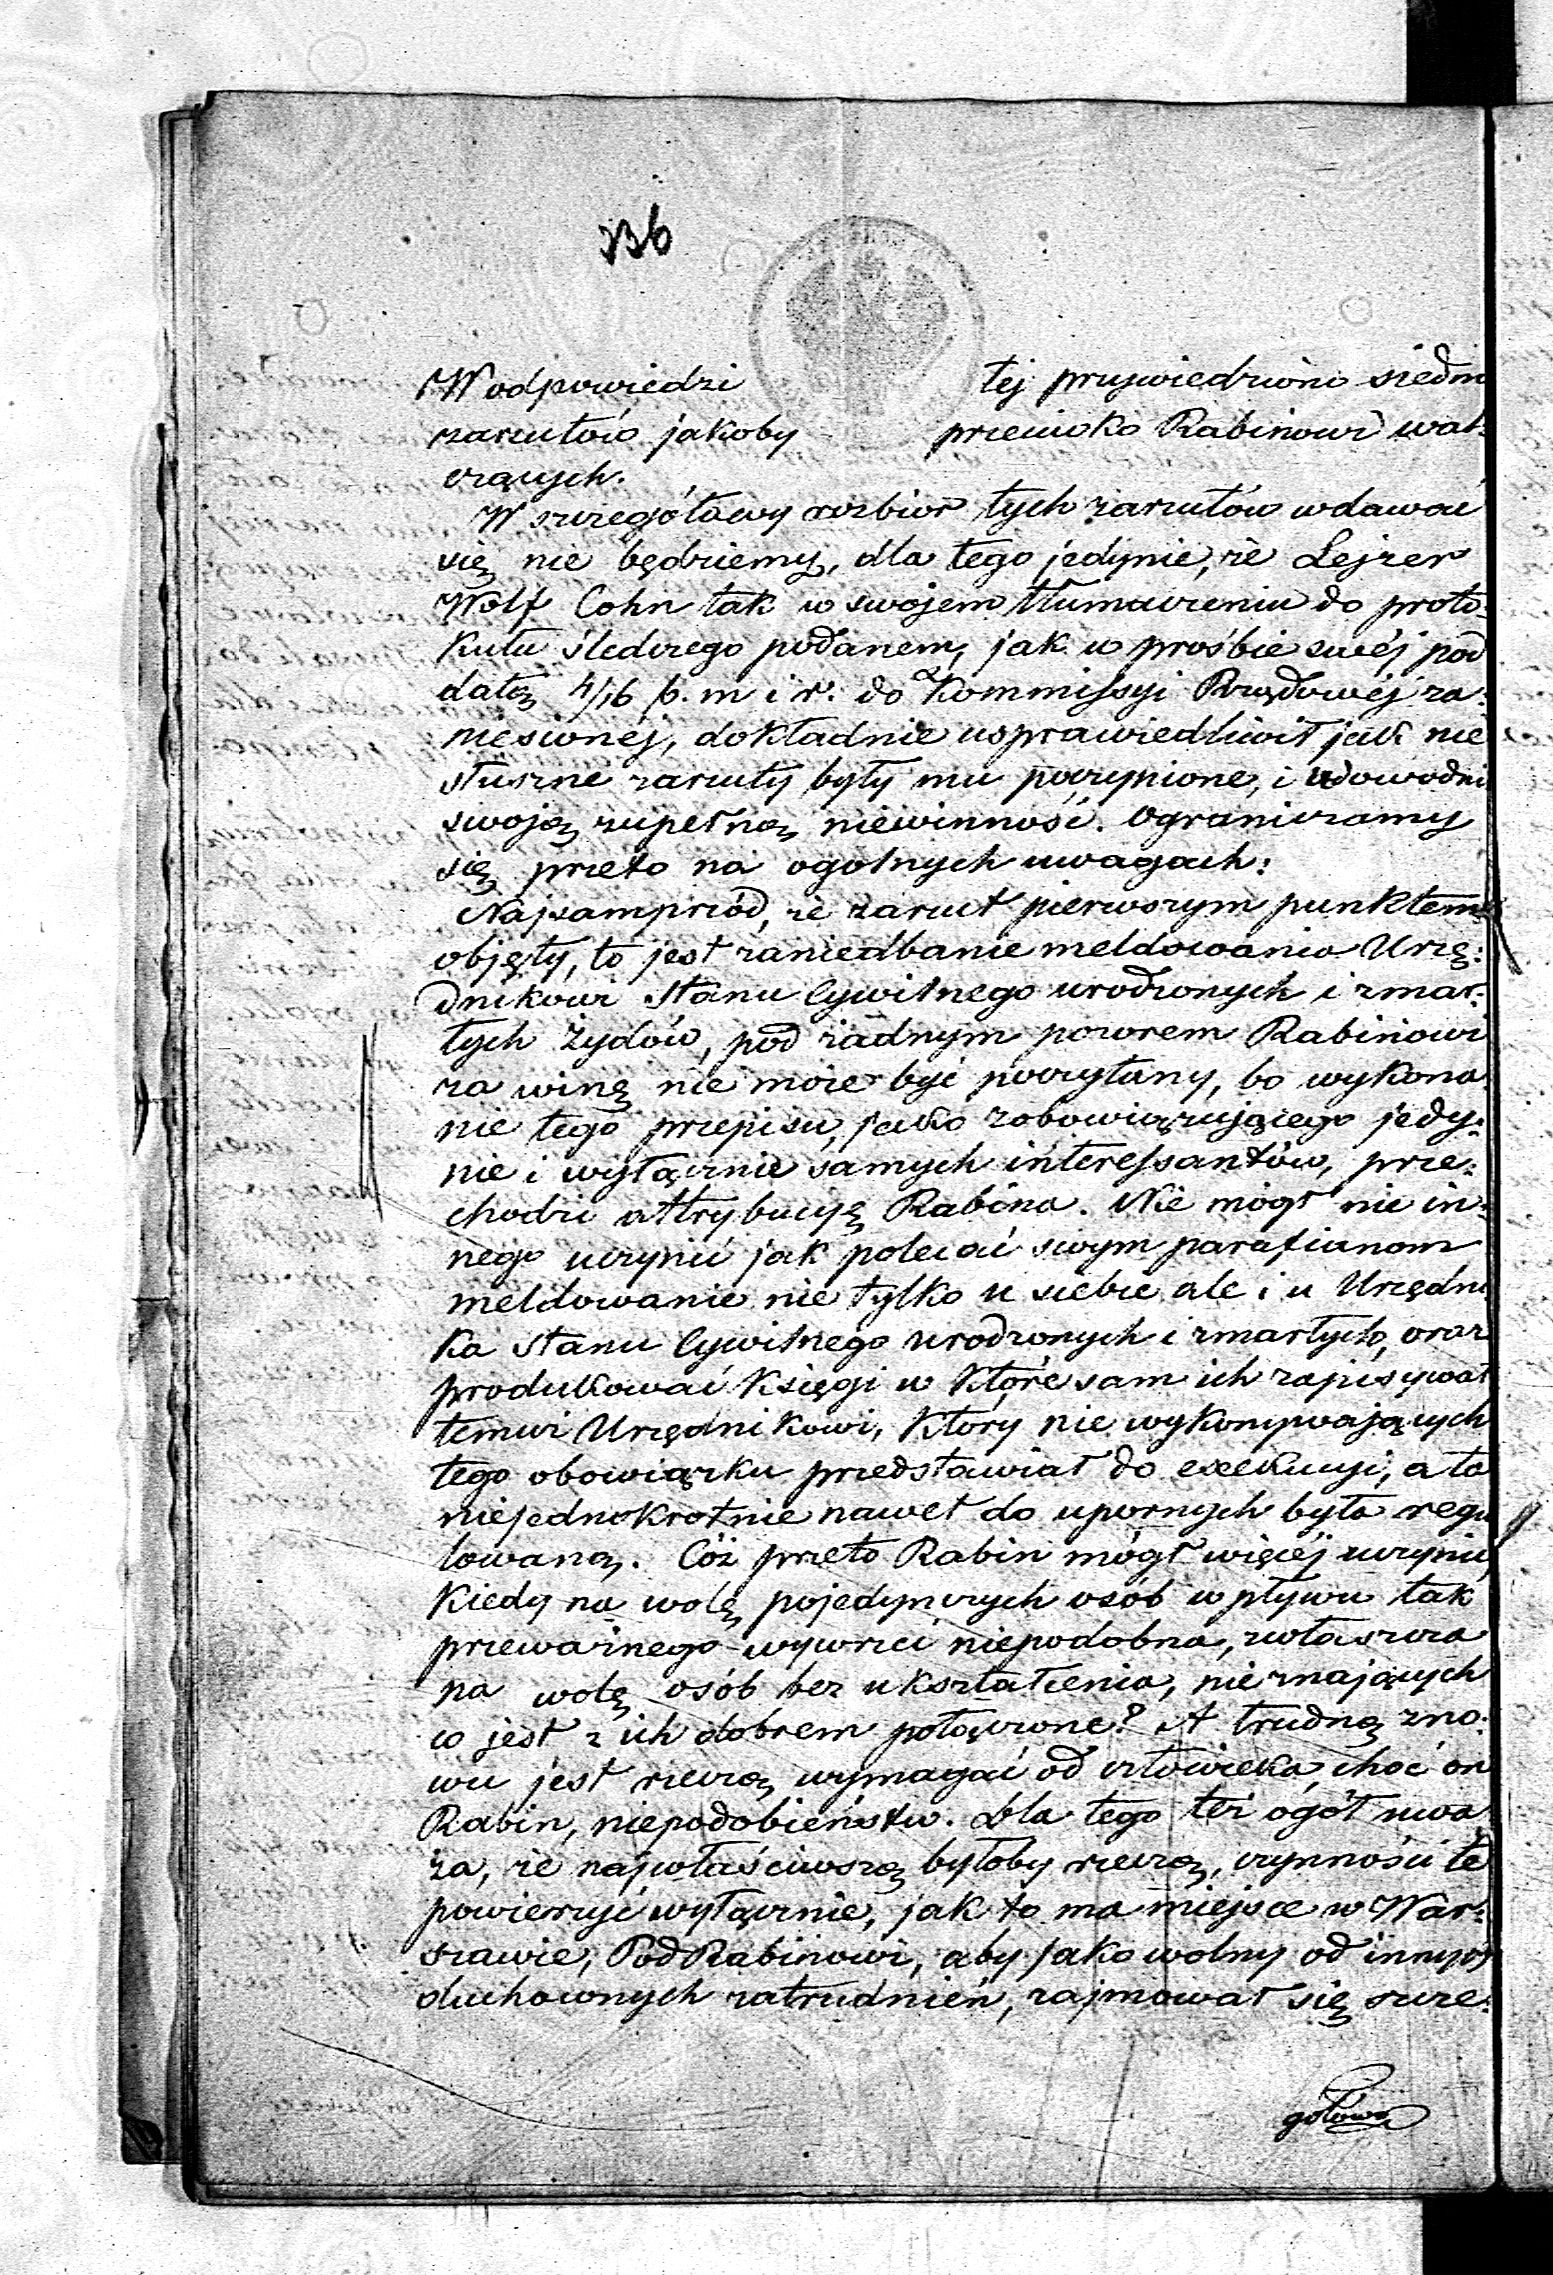 336
W odpowiedzi tej przywiedziono siedm
zarzutów jakoby przeciwko Rabinowi wal-
czących.
W szczegółowy rozbiór tych zarzutów wdawać
się nie będziemy, dla tego jedynie, że Lejzer
Wolf Cohn tak w swojem tłumaczeniu do proto-
kułu śledczego podanem, jak w prośbie swéj pod
datą 4/16 b. m i r. do Kommissyi Rządowéj za-
niesionéj, dokładnie usprawiedliwił jak nie
słuszne zarzuty były mu poczynione, i udowodnił
swoją zupełną niewinność. Ograniczamy
się przeto na ogolnych uwagach:
Najsamprzód, że zarzut pierwszym punktem
objęty, to jest zaniedbanie meldowania Urzę-
dnikowi Stanu Cywilnego urodzonych i zmar-
łych Żydów, pod żadnym pozorem Rabinowi
za winę nie może być poczytany, bo wykona-
nie tego przepisu, jako zobowiązującego jedy-
nie i wyłącznie samych interessantów, prze-
chodzi attrybucyę Rabina. Nie mógł nic in-
nego uczynić jak polecać swym parafianom
meldowanie nie tylko u siebie ale i u Urzędni
ka Stanu Cywilnego urodzonych i zmarłych, oraz
produkować księgi w które sam ich zapisywał
temuż Urzędnikowi, który nie wykonywających
tego obowiązku przedstawiał do exekucyi, a ta
niejednokrotnie nawet do upornych była regu
lowaną. Cóż przeto Rabin mógł więcéj uczynić,
kiedy na wolę pojedynczych osób wpływu tak
przeważnego wywrzeć niepodobna, zwłaszcza
na wolę osób bez ukształcenia, nieznających
co jest z ich dobrem połączone? A trudną zno-
wu jest rzeczą wymagać od człowieka, choć on
Rabin, niepodobieństw. Dla tego też ogół uwa-
ża, że najwłaściwszą byłoby rzeczą, czynności te
powierzyć wyłącznie, jak to ma miejsce w War-
szawie, PodRabinowi, aby jako wolny od innych
duchownych zatrudnień, zajmował się szcze-
gółową